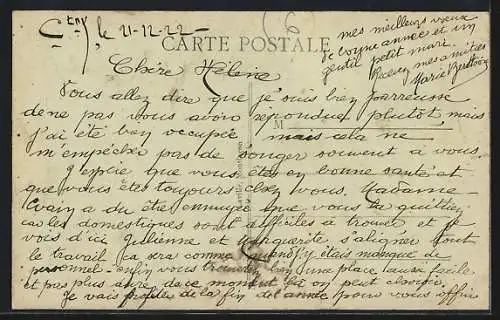 C^tny, le 21-12-22-
6
CARTE POSTALE
mes meilleurs vœux
de bonne année et un
gentil petit mari.
Recevez mes amitiés
Marie
Chère Hélène
Vous allez dire que je suis bien paresseuse
de ne pas vous avoir répondue plutôt mais
j'ai été bien occupée mais cela ne
m'empêche pas de songer souvent à vous.
J'espère que vous êtes en bonne santé et
que vous êtes toujours chez vous. Madame
a du être ennuyée que vous la quittiez
car les domestiques sont difficiles à trouver et je
vois d'ici Julienne et Marguerite s'aligner tout
le travail ça sera comme quand j'y étais manque de
personnel - enfin vous trouverez bien une place aussi facile
et pas plus dure de ce moment là on peut choisir.
Je vais profiter de la fin de l'année pour vous offrir